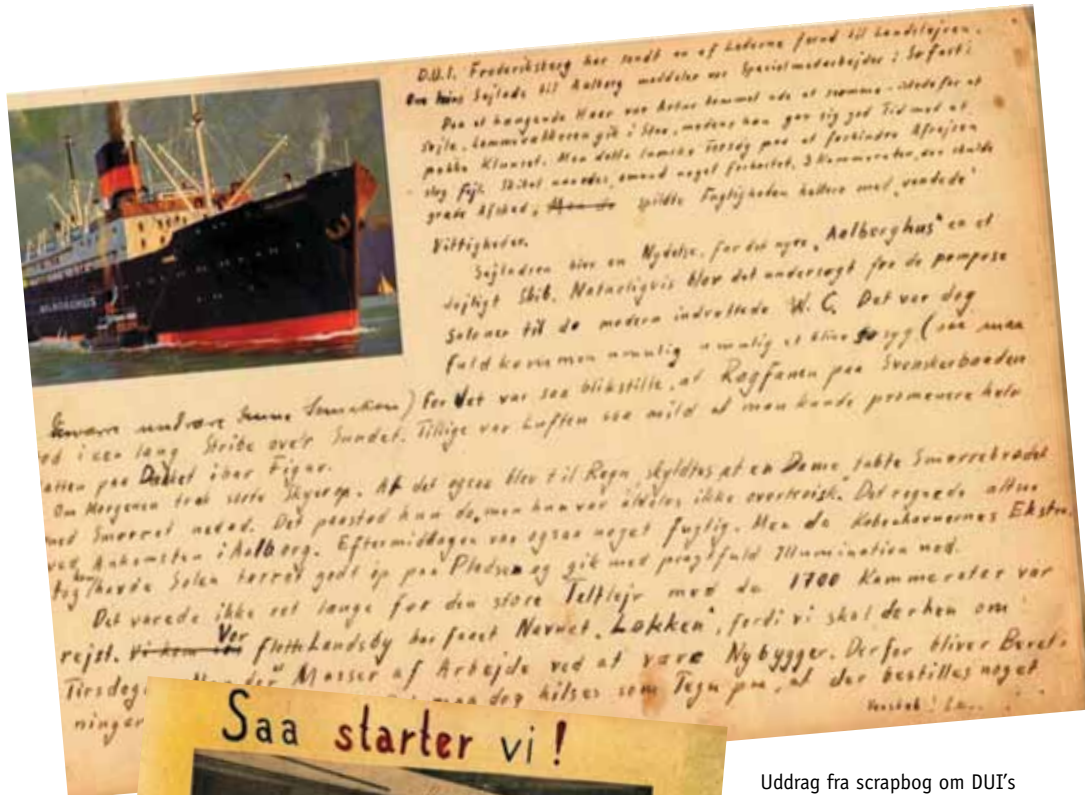 D.U.I. Frederiksberg har sendt en af Lederne forud til Landslejren.
Om hans Sejlads til Aalborg meddeler vor Specialmedarbejder i Søfart:
Paa et hængende Haar var Artur kommet ude at svømme istedefor at
Sejle. gik i Staa, medens han gav sig god Tid med at
pakke Klunset. Men dette lumske Forsøg paa at forhindre Afrejsen
slog fejl. Skibet naaedes, omend noget forhastet. 3 Kammerater, der skulde
græde Afsked, Men de spildte Fugtigheden hellere med „vandede"
Vittigheder.
Sejladsen blev en Nydelse, for det nye „Aalborghus" er et
dejligt Skib. Naturligvis blev det undersøgt fra de pompøse
Saloner til de modern indrettede W.C. Det var dog
fuldkommen umulig umulig at blive søsyg (
) For det var saa blikstille, at Røgfanen paa Svenskerbaaden
i een lang Stribe over Sundet. Tillige var Luften saa mild at man kunde promenere hele
paa Dækket i bar Figur.
Om Morgenen trak sorte Skyer op. At det ogsaa blev til Regn, skyldtes at en Dame tabte Smørrebrødet
med Smørret nedad. Det paastod hun da, men hun var aldeles ikke overtroisk. Det regnede altsaa
ved Ankomsten i Aalborg. Eftermiddagen var ogsaa noget fugtig. Men da Københavnernes Ekstra-
tog kom havde Solen tørret godt op paa Pladsen og gik med pragtfuld Illumination ned.
Det varede ikke ret længe før den store Teltlejr med de 1700 Kammerater var
rejst. Vi kom Vor flotte Landsby har faaet Navnet „Løkken", fordi vi skal derhen om
Tirsdagen. der Masser af Arbejde ved at være Nybygger. Derfor bliver Beret-
ninger man dog hilses som Tegn paa, at der bestilles noget
Venskab!
ALBORGHUS
Saa starter vi!
Uddrag fra scrapbog om DUI's